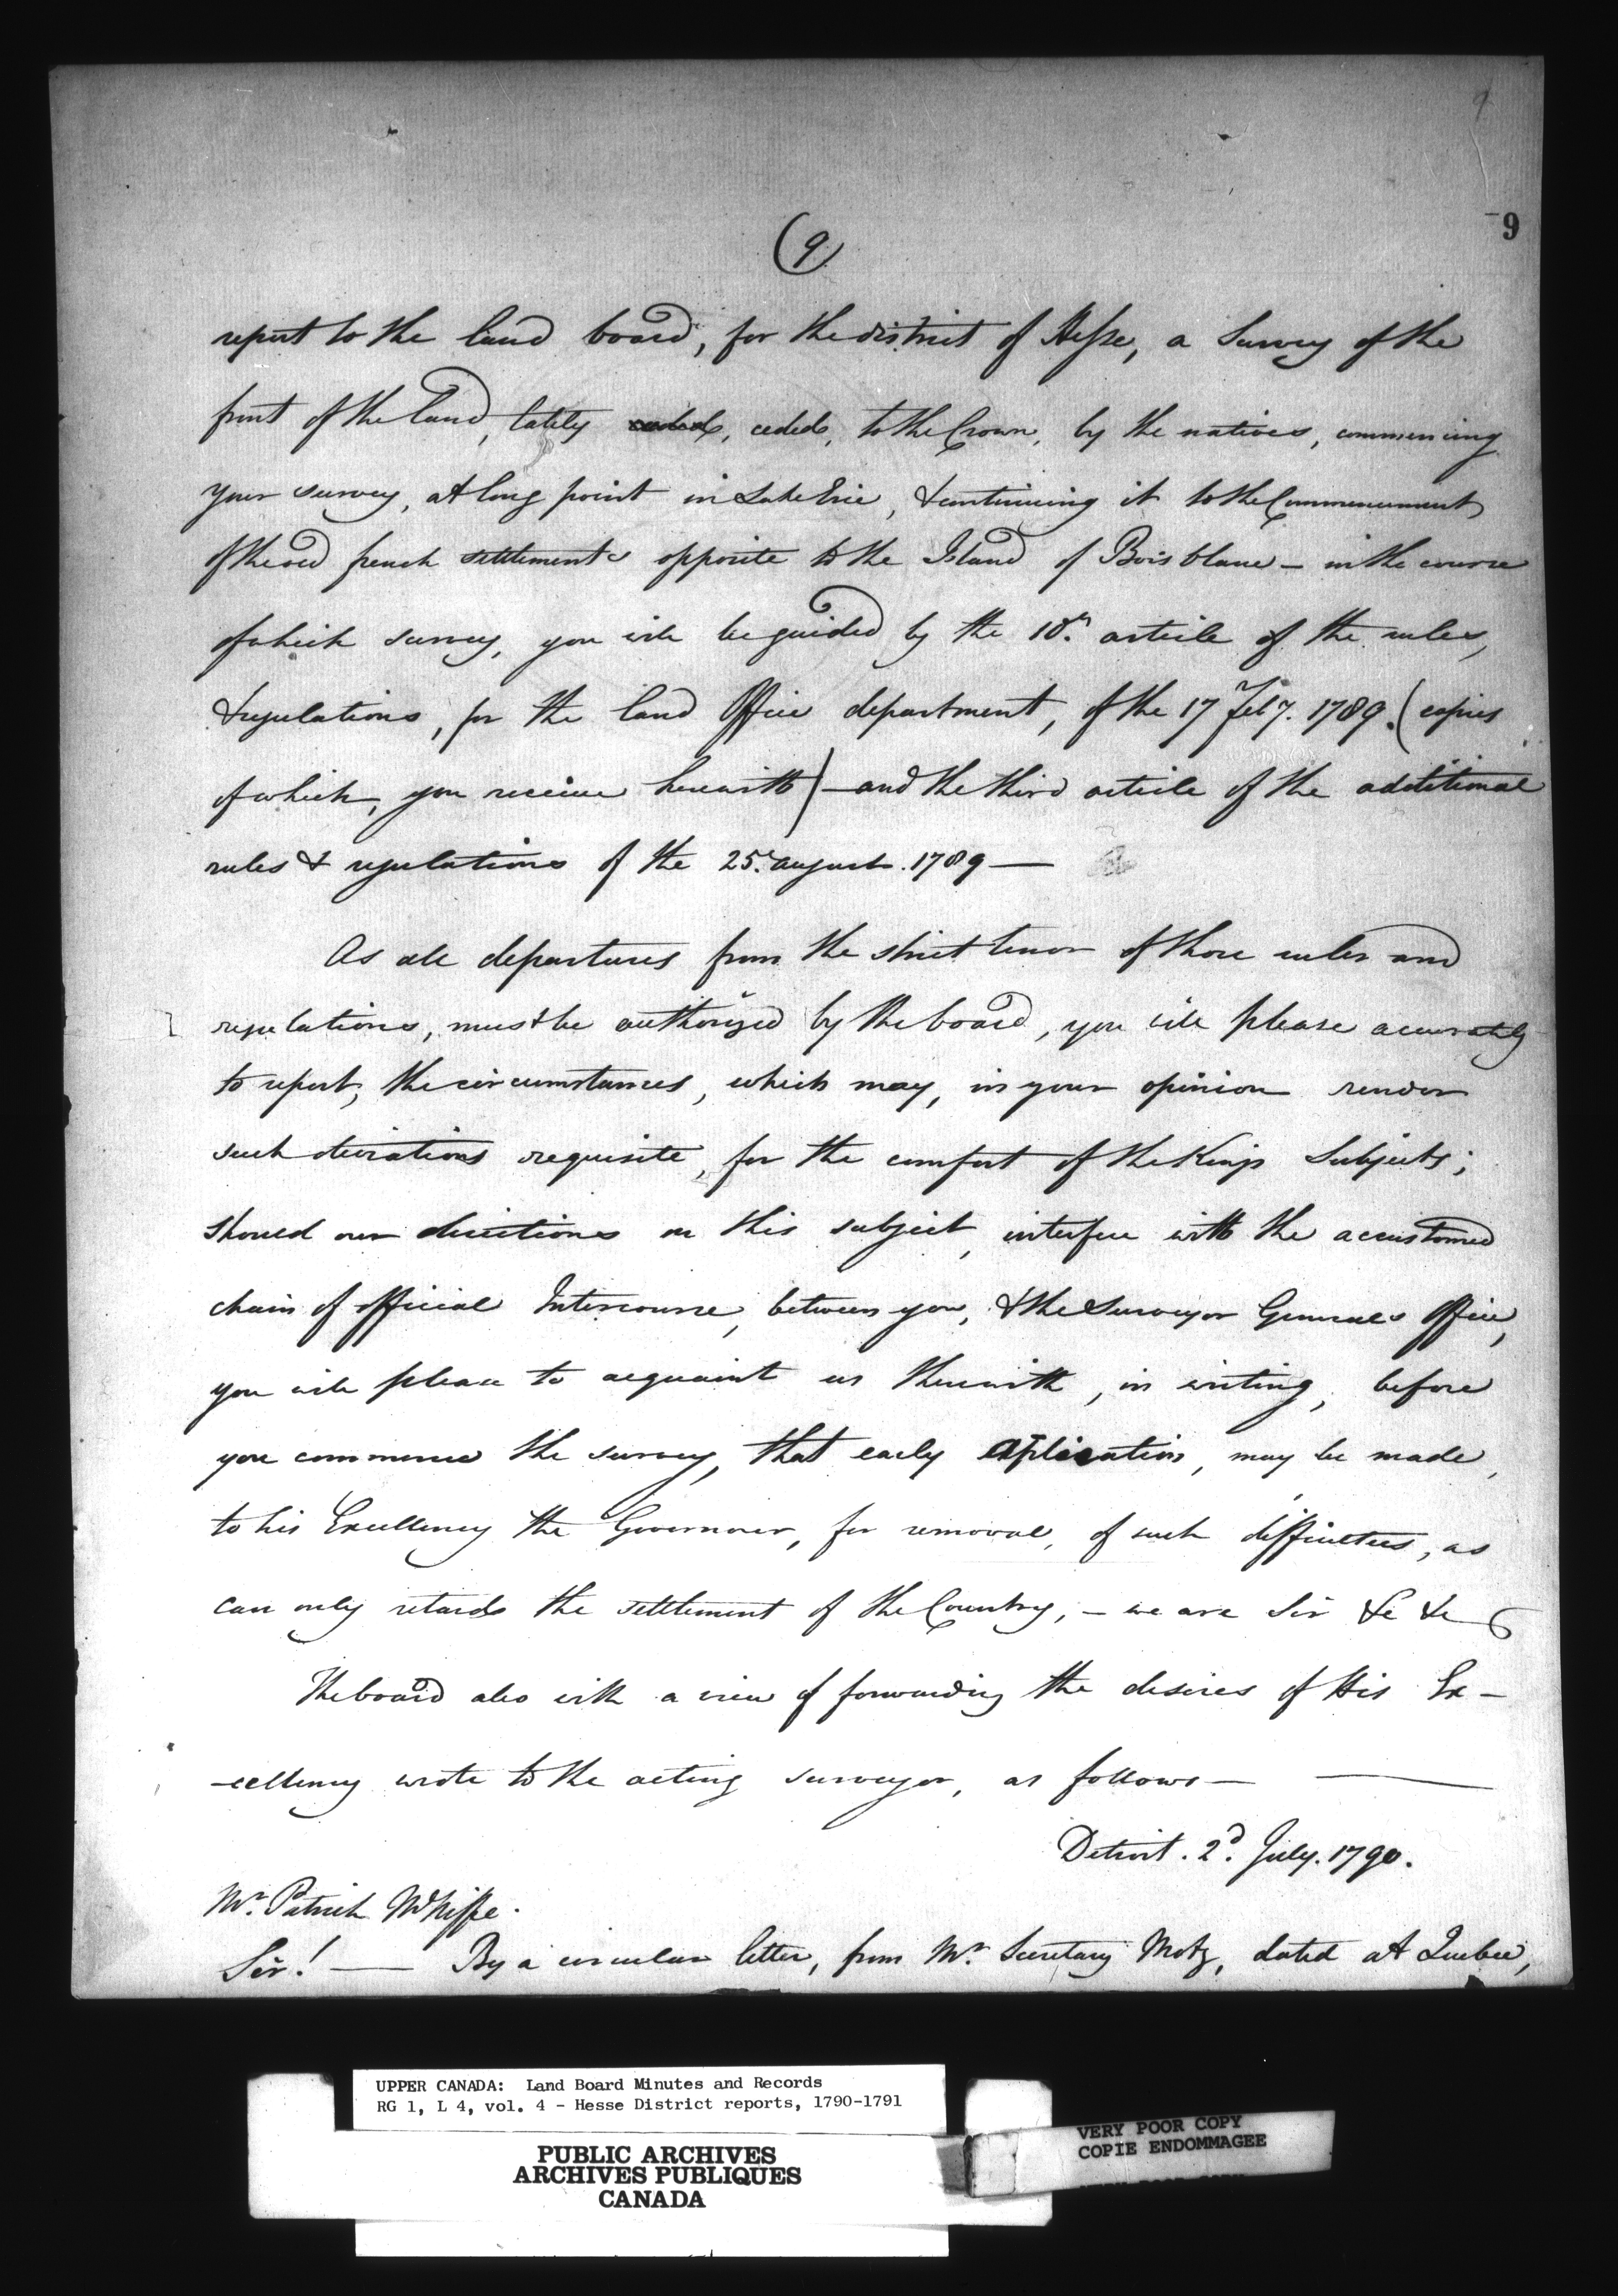 9
(9)
report to the land board, for the district of Hesse, a Survey of the
front of the land, lately ceded, to the Crown, by the natives, commencing
your survey, at long point in Lake Erie, & continuing it to the Commencement
of the old french settlements opposite to the Island of Bois blanc – in the course
of which survey, you will be guided by the 10th. article of the rules,
& regulations, for the land Office department, of the 17 Feby. 1789. (copies
of which, you receive herewith) – and the third article of the additional
rules & regulations of the 25. august. 1789 —
As all departures from the strict tenor of those rules and
regulations, must be authorized by the board, you will please accurately
to report, the circumstances, which may, in your opinion render
such deviations requisite, for the comfort of the Kings Subjects;
should our directions on this subject, interfere with the accustomed
chain of official Intercourse, between you, & the Surveyor Generals Office,
you will please to acquaint us therewith, in writing, before
you commence the survey, that early application, may be made,
to his Excellency the Governour, for removal, of such difficulties, as
can only retards the settlement of the Country, – we are Sir &c &c
The board also with a view of forwarding the desires of His Ex–
–cellency wrote to the acting surveyor, as follows —
Detroit. 2d. July. 1790.
Mr. Patrick McNiffe.
Sir! — By a circular letter, from Mr. Secretary Motz, dated at Quebec,
UPPER CANADA: Land Board Minutes and Records
RG 1, L 4, vol. 4 - Hesse District reports, 1790-1791
PUBLIC ARCHIVES
ARCHIVES PUBLIQUES
CANADA
VERY POOR COPY
COPIE ENDOMMAGEE